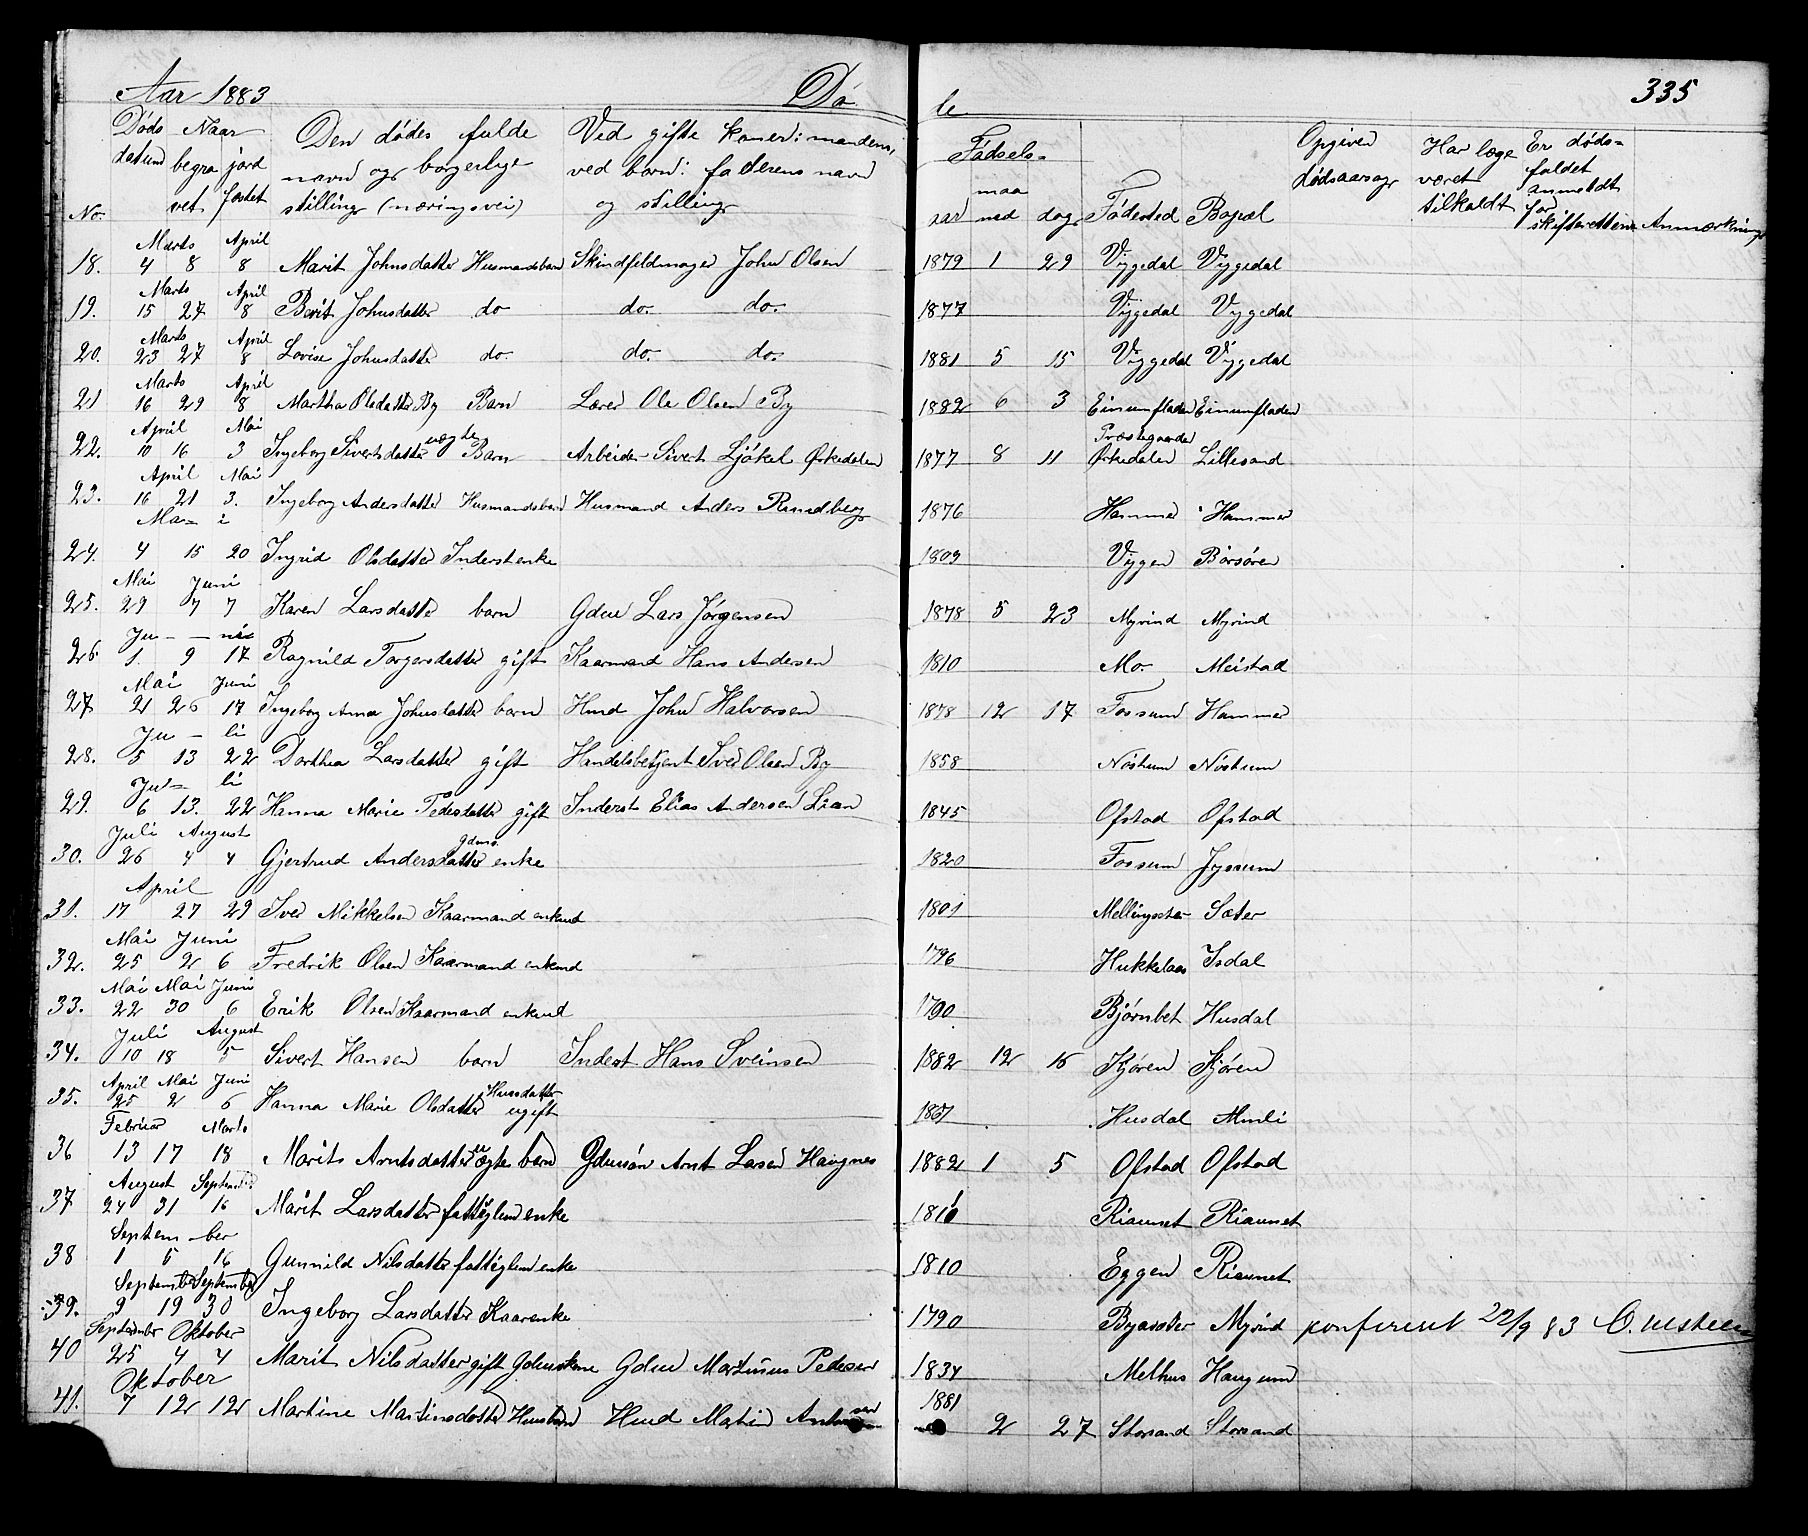 Aar 1883 Døde 335
No. Døds datum Naar begravet jordfæstet Den dødes fulde navn og borgerlige stilling (næringsvei) Ved gifte koner: mandens, ved barn: faderens navn og stilling Fødsels- aar maaned dag Fødested Bopæl Opgiven dødsaarsag Har læge været tilkaldt Er dødsfaldet anmeldt for skifteretten Anmærkning
Marts April
18. 4 8 8 Marit Johnsdatter Husmandsbarn Skindfeldmager John Olsen 1879 1 29 Viggedal Viggedal
Marts April
19. 15 27 8 Berit Johnsdatter do do. do. 1877 Viggedal Viggedal
Marts April
20. 23 27 8 Lovise Johnsdatter do. do. do. 1881 5 15 Viggedal Viggedal
Marts April
21 16 29 8 Martha Olsdatter By Barn Lærer Ole Olsen By 1882 6 3 Einumfladen Einumfladen
April Mai
22. 10 16 3 Ingeborg Sivertsdatter uægte Barn Arbeider Sivert Ljøkel Ørkedalen 1877 8 11 Præstegaarden Ørkedalen Lillesand
April Mai
23. 16 21 3. Ingeborg Andersdatter Husmandsbarn Husmand Anders Rundberg 1876 Hammer Hammer
Ma - i
24. 4 15 20 Ingrid Olsdatter Inderstenke 1809 Viggen Børsøren
Mai Juni
25. 29 7 7 Karen Larsdatter barn Gdm Lars Jørgensen 1878 5 23 Myrind Myrind
Ju - - ni
26 1. 9 17 Ragnild Torgersdatter gift Kaarmand Hans Andersen 1810 Mo. Meistad
Mai Juni
27 21 26 17 Ingeborg Anna Johnsdatter barn Hmd John Halvorsen 1878 12 17 Fossum Hammer
Ju - li
28. 5 13 22 Dorthea Larsdatter gift Handelsbetjent Iver Olsen By 1858 Nøstum Nøstum
Ju - li
29. 6 13. 22 Hanna Marie Pedersdatter gift Inderst Elias Andersen Lian 1845 Ofstad Ofstad
Juli August
30. 26 4 4 Gjertrud Andersdatter Gdms. enke 1820 Fossum Jyssum
April
31. 17 27 29 Iver Mikkelsen Kaarmand enkmd 1801 Mellingsæter Sæter
Mai Juni
32. 25 2 6 Fredrik Olsen Kaarmand enkmd 1796 Hukkelaas Isdal
Mai Mai Juni
33. 22 30 6 Erik Olsen Kaarmand enkmd 1790 Bjørnbet Husdal
Juli August
34. 10 18 5 Sivert Hansen barn Inderst Hans Sveinsen 1882 12 16 Kjøren Kjøren
April Mai Juni
35. 25 2 6 Hanna Marie Olsdatter Husdatter ugift 1867 Husdal
Februar Marts
36 13 17 18 Marits Arntsdatter uægte barn Gdmsøn Arnt Larsen Haugnes 1882 1 5 Ofstad Ofstad
August September
37 24 31 16 Marit Larsdatter fattiglem enke 1816 Riaunet Riaunet
Septem - ber
38 1 5 16 Gunnild Nilsdatter fattiglem enke 1810 Eggen Riaunet
September September
39. 9 19 30 Ingeborg Larsdatter Kaarenke 1790 Byasæter Myrind konfereret 22/9 83
September Oktober
40 25 4 4 Marit Nilsdatter gift Gdmskone Gdm Martinus Pedersen 1834 Melhus Haugum
Oktober
41. 7 12 12 Martine Martinsdatter Husbarn Hmd Martin 1881 2 27 Storsand Storsand